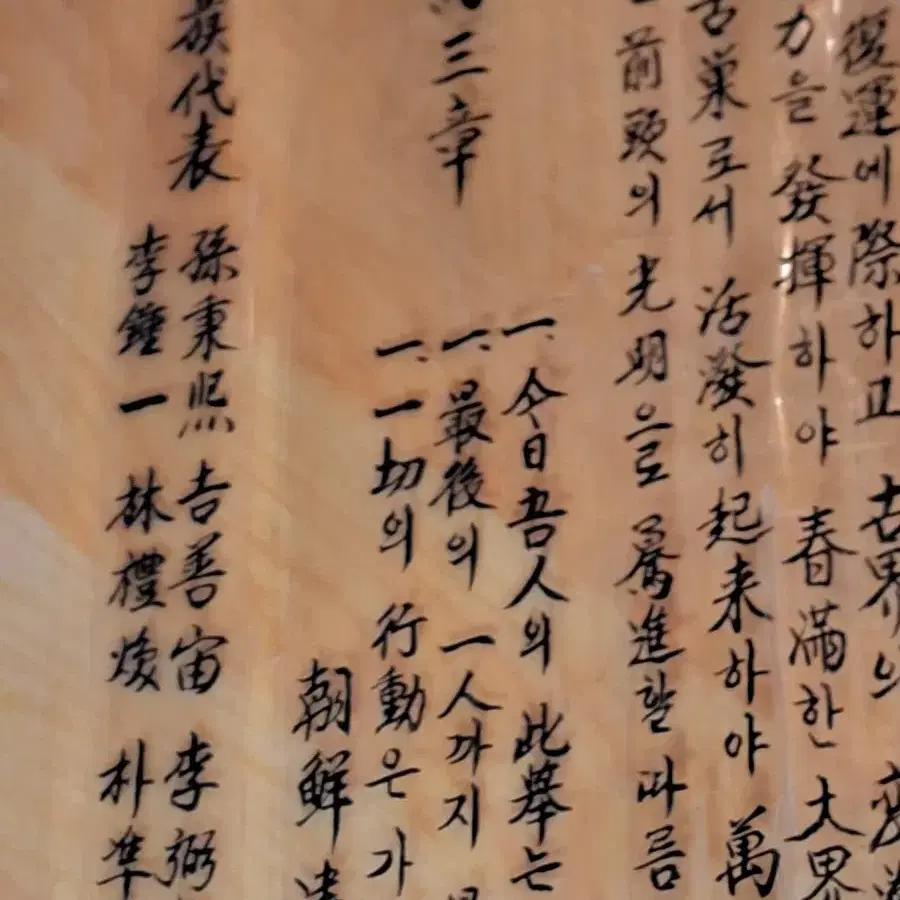 復運에 際하고 世界의 變
力을 發揮하야 春滿한 大界
古巢로서 活潑히 起來하야 萬
前頭의 光明으로 驀進할 따름
三章
一. 今日吾人의 此擧는
一. 最後의 一人까지
一. 一切의 行動은 가
朝鮮建
族代表 孫秉熙 吉善宙 李弼
李鍾一 林禮煥 朴準